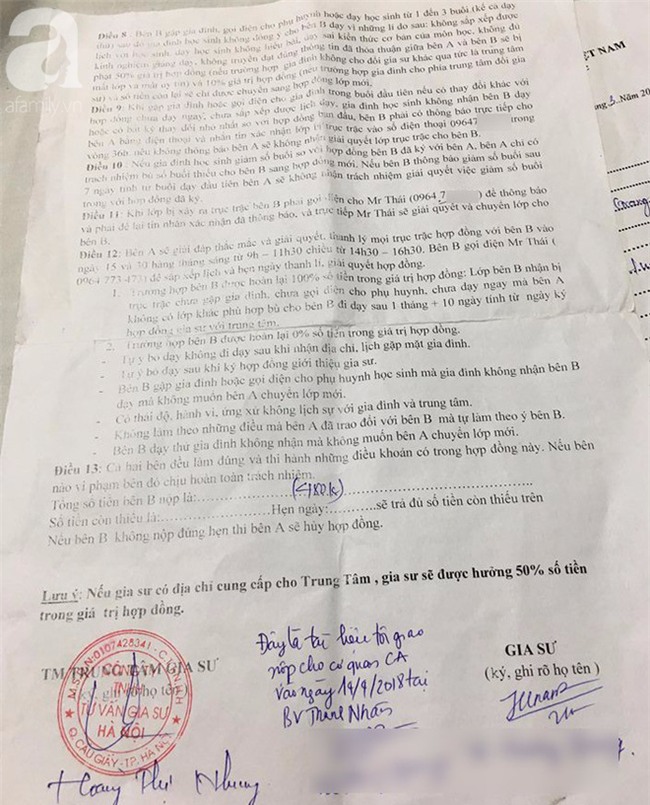 afamily.vn
Điều 8: Bên B gặp gia đình, gọi điện cho phụ huynh hoặc dạy học sinh từ 1 đến 3 buổi (kể cả dạy
thử) sau đó gia đình học sinh không đồng ý cho bên B dạy vì những lí do sau: không sắp xếp được
lịch với học sinh, dạy học sinh không hiểu bài, dạy sai kiến thức cơ bản của môn học, không đủ
kinh nghiệm giảng dạy, không truyền đạt đúng thông tin đã thỏa thuận giữa bên A và bên B sẽ bị
phạt 30% giá trị hợp đồng (nếu trường hợp gia đình không cho đổi gia sư khác qua tức là trung tâm
mất lớp và mất uy tín) và 10% giá trị hợp đồng (nếu trường hợp gia đình cho phía trung tâm đổi gia
sư) và số tiền còn lại sẽ được chuyển sang hợp đồng lớp mới.
Điều 9: Khi gặp gia đình hoặc gọi điện cho gia đình trong buổi đầu tiên nếu có thay đổi khác với
hợp đồng chưa dạy ngay, chưa sắp xếp được lịch dạy, gia đình học sinh không nhận bên B dạy
hoặc có bất kỳ thay đổi nhỏ nhất so với hợp đồng ban đầu, bên B phải có thông báo trực tiếp cho
bên A bằng điện thoại và nhắn tin xác nhận lớp bị trục trặc vào số điện thoại 09647 trong
vòng 36h, nếu không thông báo bên A sẽ không nhận giải quyết lớp trục trặc cho bên B.
Điều 10: Nếu gia đình học sinh giảm số buổi so với hợp đồng bên B đã ký với bên A, bên A chỉ có
trách nhiệm bù số buổi thiếu cho bên B sang hợp đồng mới. Nếu bên B thông báo giảm số buổi sau
7 ngày tính từ buổi dạy đầu tiên bên A sẽ không nhận trách nhiệm giải quyết việc giảm số buổi
trong với hợp đồng đã ký.
Điều 11: Khi lớp bị xảy ra trục trặc bên B phải gọi điện cho Mr Thái (0964 7 ) để thông báo
và phải để lại tin nhắn xác nhận đã thông báo, và trực tiếp Mr Thái sẽ giải quyết và chuyển lớp cho
bên B.
Điều 12: Bên A sẽ giải đáp thắc mắc và giải quyết, thanh lý mọi trục trặc hợp đồng với bên B vào
ngày 15 và 30 hàng tháng sáng từ 9h – 11h30 chiều từ 14h30 – 16h30. Bên B gọi điện Mr Thái (
0964 773 473) để sắp xếp lịch và hẹn ngày thanh lí, giải quyết hợp đồng.
1. Trường hợp bên B được hoàn lại 100% số tiền trong giá trị hợp đồng: Lớp bên B nhận bị
trục trặc chưa gặp gia đình, chưa gọi điện cho phụ huynh, chưa dạy ngay mà bên A
không có lớp khác phù hợp bù cho bên B đi dạy sau 1 tháng + 10 ngày tính từ ngày ký
hợp đồng gia sư với trung tâm.
2. Trường hợp bên B được hoàn lại 0% số tiền trong giá trị hợp đồng.
- Tự ý bỏ dạy không đi dạy sau khi nhận địa chỉ, lịch gặp mặt gia đình.
- Tự ý bỏ dạy sau khi ký hợp đồng giới thiệu gia sư.
- Bên B gặp gia đình hoặc gọi điện cho phụ huynh học sinh mà gia đình không nhận bên B
dạy mà không muốn bên A chuyển lớp mới.
- Có thái độ, hành vi, ứng xử không lịch sự với gia đình và trung tâm.
- Không làm theo những điều mà bên A đã trao đổi với bên B mà tự làm theo ý bên B.
- Bên B dạy thử gia đình không nhận mà không muốn bên A chuyển lớp mới.
Điều 13: Cả hai bên đều làm đúng và thi hành những điều khoản có trong hợp đồng này. Nếu bên
nào vi phạm bên đó chịu hoàn toàn trách nhiệm.
Tổng số tiền bên B nộp là:..............(480.k)..............
Số tiền còn thiếu là:..............Hẹn ngày:..........sẽ trả đủ số tiền còn thiếu trên
Nếu bên B không nộp đúng hẹn thì bên A sẽ hủy hợp đồng.
Lưu ý: Nếu gia sư có địa chỉ cung cấp cho Trung Tâm , gia sư sẽ được hưởng 50% số tiền
trong giá trị hợp đồng.
TM/TRUNG TÂM GIA SƯ
(ký, ghi rõ họ tên)
M.S.D.N:0107426341-C.T.T.N.H.H
CÔNG TY
TNHH
TƯ VẤN GIA SƯ
HÀ NỘI
Q.CẦU GIẤY-TP.HÀ NỘI
Hoàng Thị Nhung
Đây là tài liệu tôi giao
nộp cho cơ quan CA
vào ngày 19/9/2018 tại
BV Thanh Nhàn
GIA SƯ
(ký, ghi rõ họ tên )
VIỆT NAM